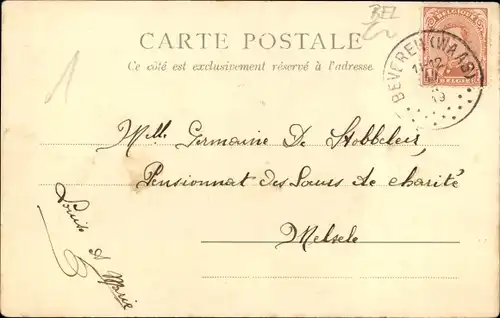 BEL
CARTE POSTALE
Ce côté est exclusivement réservé à l'adresse.
BEVEREN (WAAS)
11-12
19
BELGIQUE
BELGIË
1
Melle Germaine De Stobbeleir,
Pensionnat des Sœurs de charité
Melsele
Louis & Marie